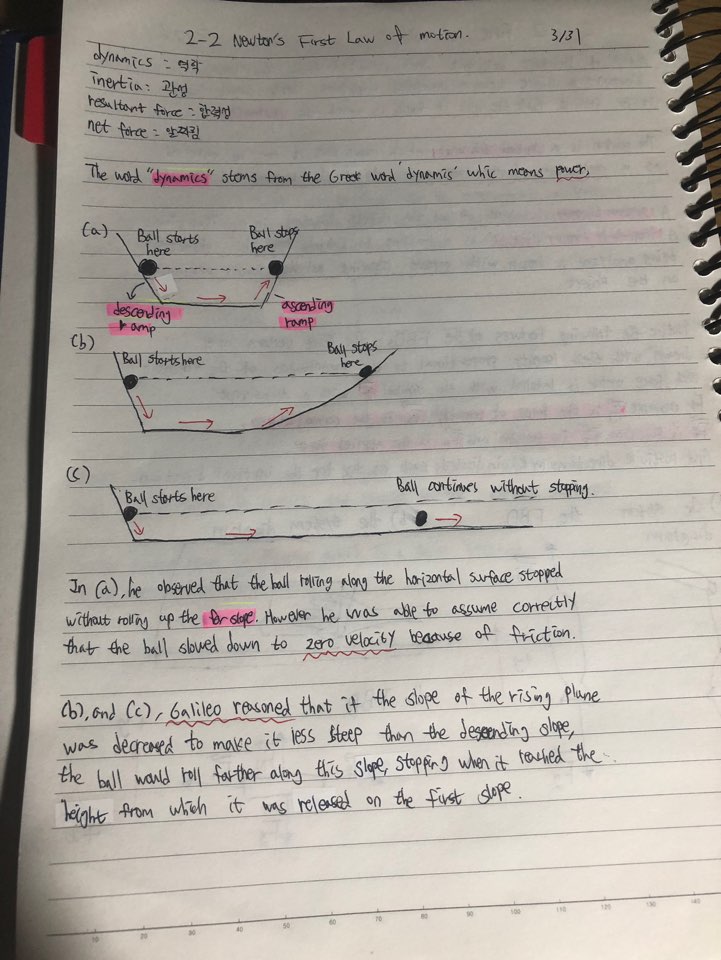 2-2 Newton's First Law of motion. 3/31
dynamics : 역학
inertia : 관성
resultant force : 합력
net force : 알짜힘
The word "dynamics" stems from the Greek word 'dynamis' whic means power,
(a)
Ball starts here
Ball stops here
descending ramp
ascending ramp
(b)
Ball starts here
Ball stops here
(c)
Ball starts here
Ball continues without stopping.
In (a), he observed that the ball rolling along the horizontal surface stopped
without rolling up the far slope. However he was able to assume correctly
that the ball slowed down to zero velocity because of friction.
(b), and (c), Galileo reasoned that if the slope of the rising plane
was decreased to make it less steep than the descending slope,
the ball would roll farther along this slope, stopping when it reached the
height from which it was released on the first slope.
10 20 30 40 50 60 70 80 90 100 110 120 130 140